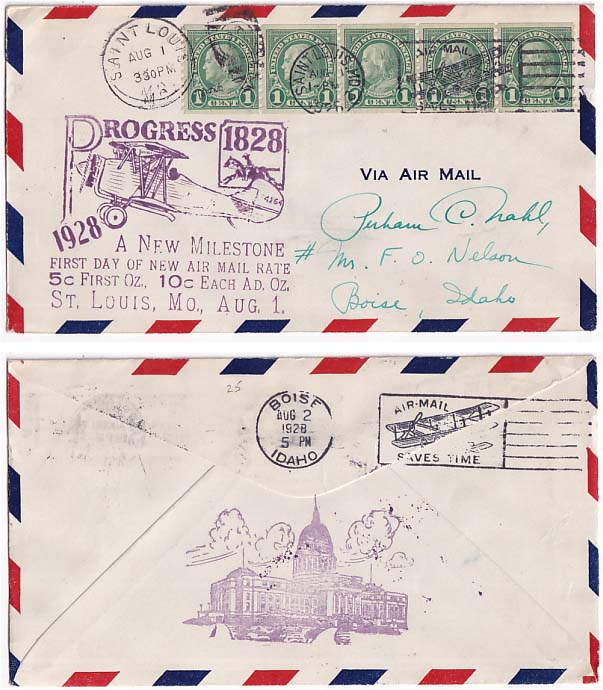 SAINT LOUIS
AUG 1
330PM
MO.
UNITED STATES POSTAGE
1 CENT 1
1 CENT 1
1 CENT 1
1 CENT 1
1 CENT 1
SAINT LOUIS, MO.
AUG
AIR MAIL
PROGRESS 1828
4164
1928
A NEW MILESTONE
FIRST DAY OF NEW AIR MAIL RATE
5¢ FIRST OZ, 10¢ EACH AD. OZ,
ST. LOUIS, MO., AUG. 1.
VIA AIR MAIL
Perham C. Nahl,
# Mr. F. O. Nelson
Boise, Idaho
25
BOISE
AUG 2
1928
5 PM
IDAHO
AIR-MAIL
SAVES TIME